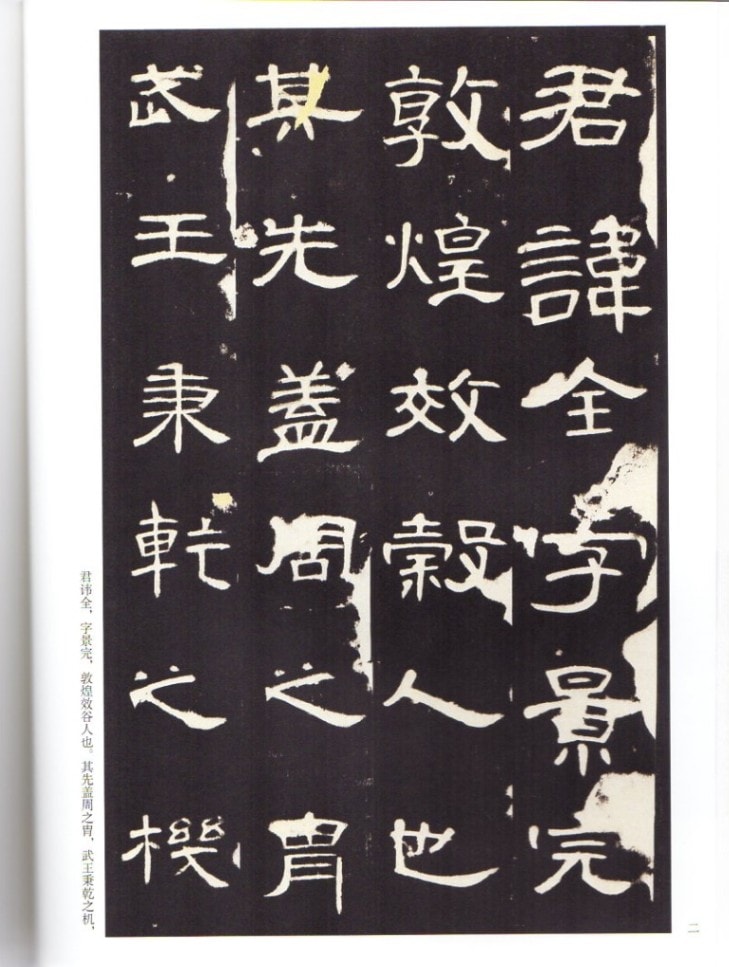 君諱全字景完
敦煌效穀人也
其先蓋周之胄
武王秉乾之機
君讳全，字景完，敦煌效谷人也。其先盖周之胄，武王秉乾之机，
二